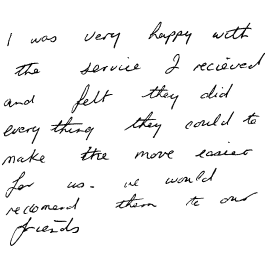 I was very happy with
the service I recieved
and felt they did
every thing they could to
make the move easier
for us. we would
reccomend them to our
friends